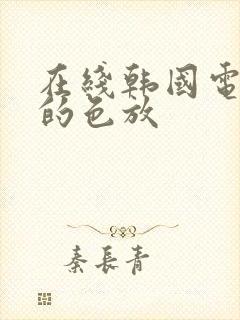 在綫韩國電
的色放
秦長青